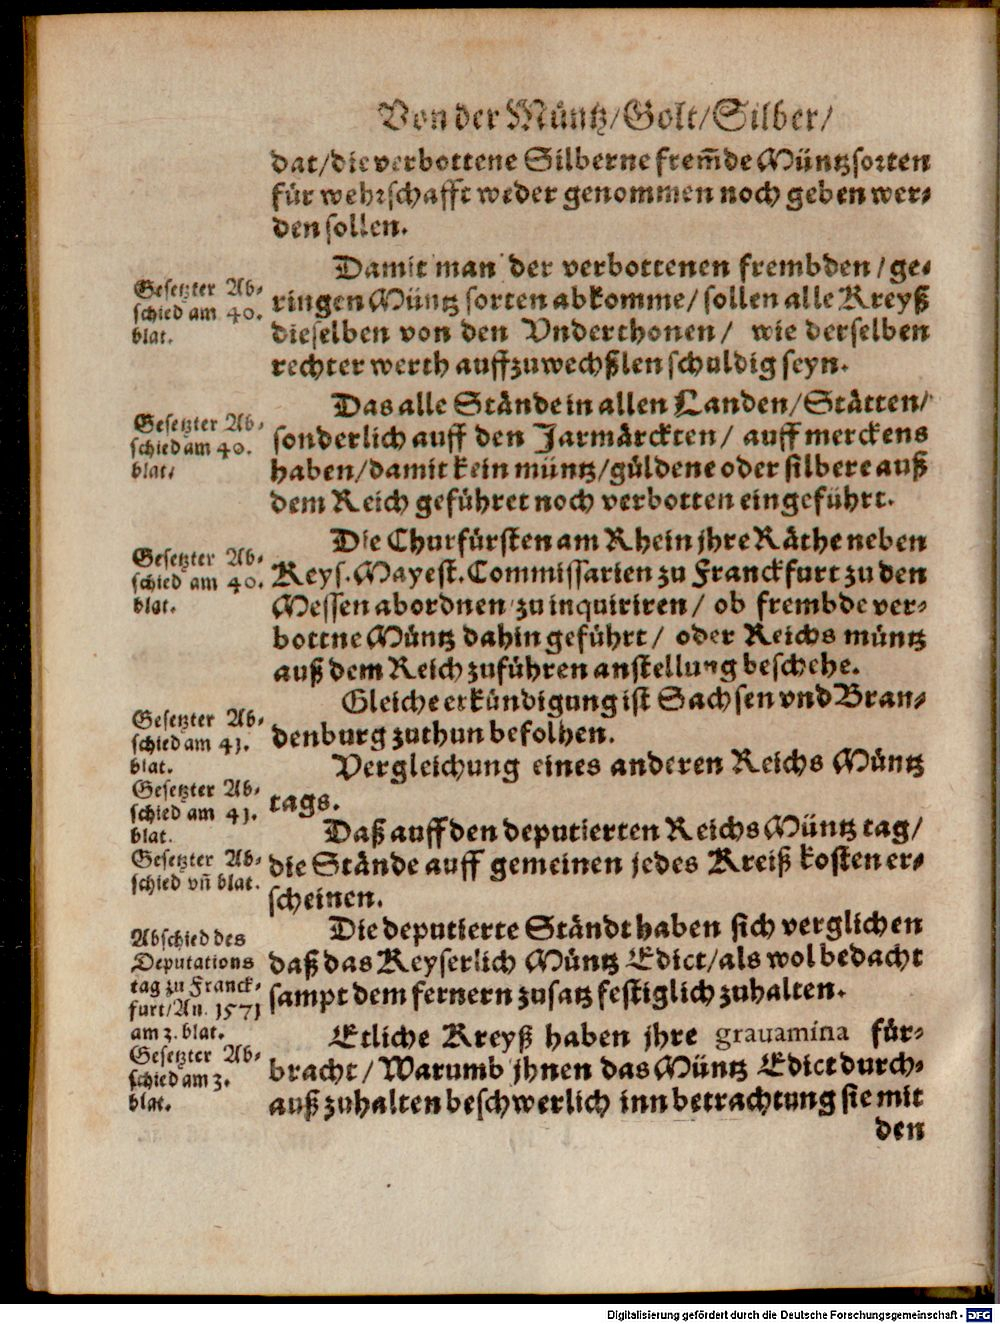 Von der Müntz/Golt/Silber/
dat/die verbottene Silberne frem̃de Müntzsorten
für wehrschafft weder genommen noch geben wer⸗
den sollen.
Gesetzter Ab⸗
schied am 40.
blat.
Damit man der verbottenen frembden/ge⸗
ringen Müntz sorten abkomme/sollen alle Kreyß
dieselben von den Vnderthonen/ wie derselben
rechter werth auffzuwechßlen schuldig seyn.
Gesetzter Ab⸗
schied am 40.
blat.
Das alle Stände in allen Landen/Stätten/
sonderlich auff den Jarmärckten/ auff merckens
haben/damit kein müntz/güldene oder silbere auß
dem Reich geführet noch verbotten eingeführt.
Gesetzter Ab⸗
schied am 40.
blat.
Die Churfürsten am Rhein jhre Räthe neben
Keys. Mayest. Commissarien zu Franckfurt zu den
Messen abordnen zu inquiriren/ ob frembde ver⸗
bottne Müntz dahin geführt/ oder Reichs müntz
auß dem Reich zuführen anstellung beschehe.
Gesetzter Ab⸗
schied am 41.
blat.
Gleiche erkündigung ist Sachsen vnd Bran⸗
denburg zuthun befolhen.
Gesetzter Ab⸗
schied am 41.
blat.
Vergleichung eines anderen Reichs Müntz
tags.
Gesetzter Ab⸗
schied vñ blat.
Daß auff den deputierten Reichs Müntz tag/
die Stände auff gemeinen jedes Kreiß kosten er⸗
scheinen.
Abschied des
Deputations
tag zu Franck⸗
furt/An. 1571
am 2. blat.
Die deputierte Ständt haben sich verglichen
daß das Keyserlich Müntz Edict/als wol bedacht
sampt dem fernern zusatz festiglich zuhalten.
Gesetzter Ab⸗
schied am 3.
blat.
Etliche Kreyß haben jhre gravamina für⸗
bracht/Warumb jhnen das Müntz Edict durch⸗
auß zuhalten beschwerlich inn betrachtung sie mit
den
Digitalisierung gefördert durch die Deutsche Forschungsgemeinschaft - DFG